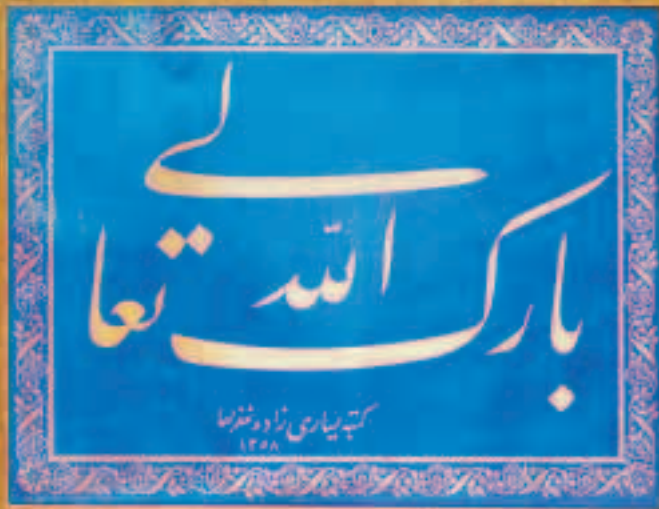 بارک الله تعالی
کتبه یساری زاده غفرلهما
۱۳۵۸